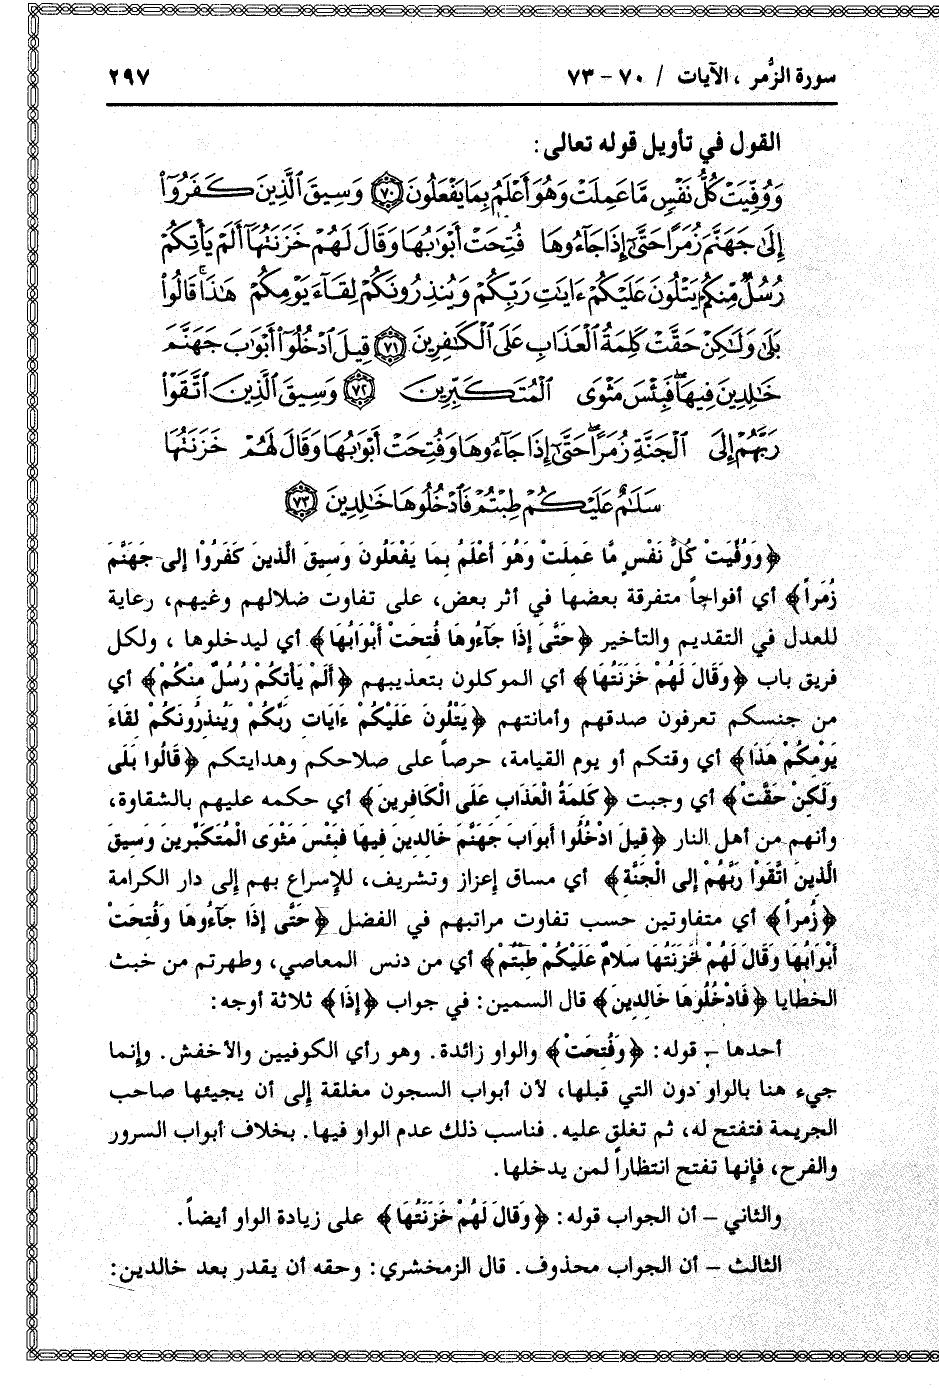 سورة الزُّمر ، الآيات / ٧٠ - ٧٣ ٢٩٧
القول في تأويل قوله تعالى:
وَوُفِّيَتْ كُلُّ نَفْسٍ مَّا عَمِلَتْ وَهُوَ أَعْلَمُ بِمَا يَفْعَلُونَ ٧٠ وَسِيقَ ٱلَّذِينَ كَفَرُوٓا۟
إِلَىٰ جَهَنَّمَ زُمَرًا حَتَّىٰٓ إِذَا جَآءُوهَا فُتِحَتْ أَبْوَٰبُهَا وَقَالَ لَهُمْ خَزَنَتُهَآ أَلَمْ يَأْتِكُمْ
رُسُلٌ مِّنكُمْ يَتْلُونَ عَلَيْكُمْ ءَايَٰتِ رَبِّكُمْ وَيُنذِرُونَكُمْ لِقَآءَ يَوْمِكُمْ هَٰذَا ۚ قَالُوا۟
بَلَىٰ وَلَٰكِنْ حَقَّتْ كَلِمَةُ ٱلْعَذَابِ عَلَى ٱلْكَٰفِرِينَ ٧١ قِيلَ ٱدْخُلُوٓا۟ أَبْوَٰبَ جَهَنَّمَ
خَٰلِدِينَ فِيهَا ۖ فَبِئْسَ مَثْوَى ٱلْمُتَكَبِّرِينَ ٧٢ وَسِيقَ ٱلَّذِينَ ٱتَّقَوْا۟
رَبَّهُمْ إِلَى ٱلْجَنَّةِ زُمَرًا ۖ حَتَّىٰٓ إِذَا جَآءُوهَا وَفُتِحَتْ أَبْوَٰبُهَا وَقَالَ لَهُمْ خَزَنَتُهَا
سَلَٰمٌ عَلَيْكُمْ طِبْتُمْ فَٱدْخُلُوهَا خَٰلِدِينَ ٧٣
﴿وَوُفِّيَتْ كُلُّ نَفْسٍ مَّا عَمِلَتْ وَهُوَ أَعْلَمُ بِمَا يَفْعَلُونَ وَسِيقَ الَّذِينَ كَفَرُوْا إِلى جَهَنَّمَ
زُمَراً﴾ أي أفواجاً متفرقة بعضها في أثر بعض، على تفاوت ضلالهم وغيهم، رعاية
للعدل في التقديم والتأخير ﴿حَتَّىَ إِذَا جَآءُوهَا فُتِحَتْ أَبْوَابُهَا﴾ أي ليدخلوها ، ولكل
فريق باب ﴿وَقَالَ لَهُمْ خَزَنَتُهَا﴾ أي الموكلون بتعذيبهم ﴿أَلَمْ يَأْتِكُمْ رُسُلٌ مِنكُمْ﴾ أي
من جنسكم تعرفون صدقهم وأمانتهم ﴿يَتْلُونَ عَلَيْكُمْ ءَايَاتِ رَبِّكُمْ وَيُنذِرُونَكُمْ لِقَاءَ
يَوْمِكُمْ هَذَا﴾ أي وقتكم أو يوم القيامة، حرصاً على صلاحكم وهدايتكم ﴿قَالُوا بَلَى
وَلَكِنْ حَقَّتْ﴾ أي وجبت ﴿كَلِمَةُ الْعَذَابِ عَلَى الْكَافِرِينَ﴾ أي حكمه عليهم بالشقاوة،
وأنهم من أهل النار ﴿قِيلَ ادْخُلُوا أَبوَابَ جَهَنَّمَ خَالِدِين فِيهَا فَبِئْسَ مَثْوَى الْمُتَكَبِّرِينَ وَسِيقَ
الَّذِينَ اتَّقَوْا رَبَّهُمْ إِلى الْجَنَّةِ﴾ أي مساق إعزاز وتشريف، للإسراع بهم إلى دار الكرامة
﴿زُمراً﴾ أي متفاوتين حسب تفاوت مراتبهم في الفضل ﴿حَتَّى إِذَا جَآءُوهَا وَفُتِحَتْ
أَبْوَابُهَا وَقَالَ لَهُمْ خَزَنَتُهَا سَلامٌ عَلَيْكُمْ طِبْتُمْ﴾ أي من دنس المعاصي، وطهرتم من خبث
الخطايا ﴿فَادْخُلُوهَا خَالِدِينَ﴾ قال السمين: في جواب ﴿إِذَا﴾ ثلاثة أوجه:
أحدها – قوله: ﴿وَفُتِحَتْ﴾ والواو زائدة. وهو رأي الكوفيين والأخفش. وإنما
جيء هنا بالواو دون التي قبلها، لأن أبواب السجون مغلقة إلى أن يجيئها صاحب
الجريمة فتفتح له، ثم تغلق عليه. فناسب ذلك عدم الواو فيها. بخلاف أبواب السرور
والفرح، فإنها تفتح انتظاراً لمن يدخلها.
والثاني – أن الجواب قوله: ﴿وَقَالَ لَهُمْ خَزَنَتُهَا﴾ على زيادة الواو أيضاً.
الثالث – أن الجواب محذوف. قال الزمخشري: وحقه أن يقدر بعد خالدين: